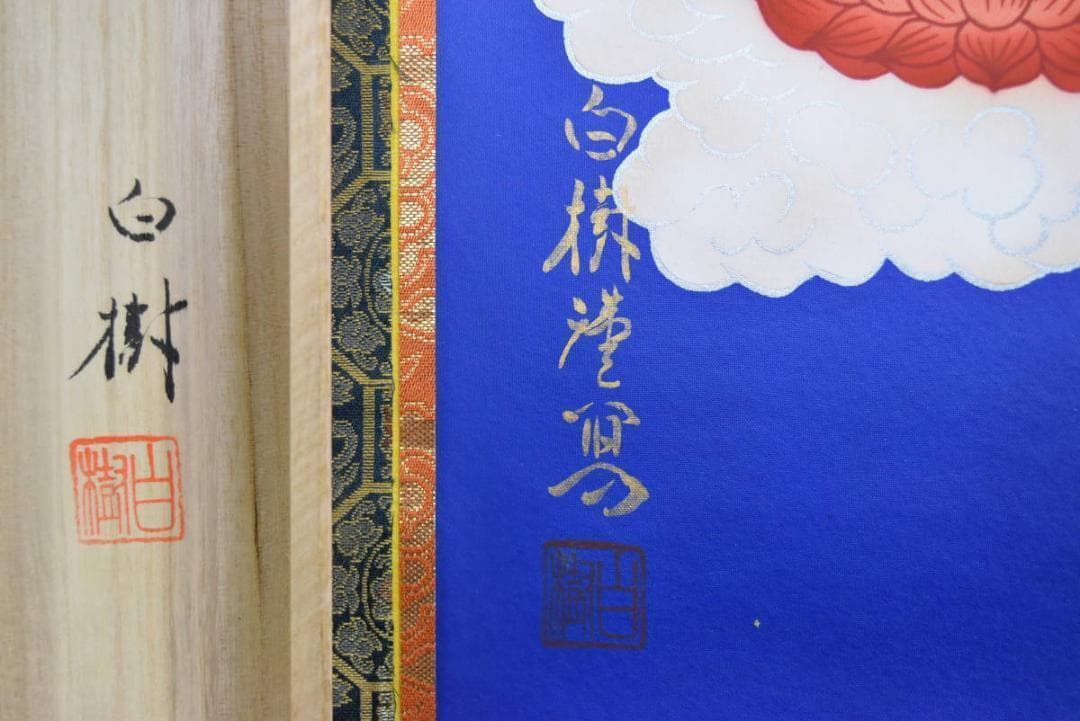 白樹
白樹
白樹謹写
白樹